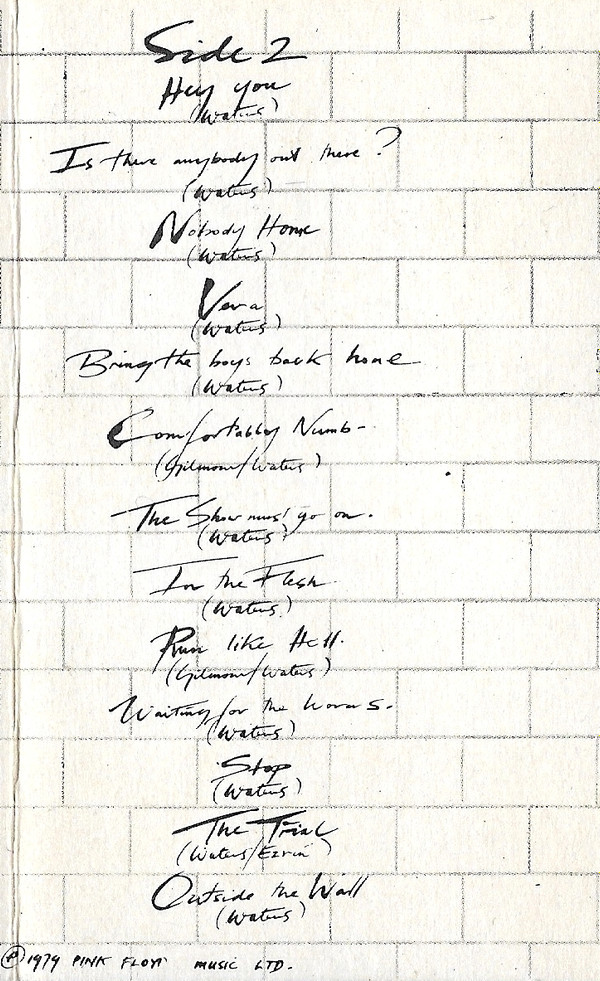 Side 2
Hey you
(Waters)
Is there anybody out there?
(Waters)
Nobody Home
(Waters)
Vera
(Waters)
Bring the boys back home
(Waters)
Comfortably Numb-
(Gilmour/Waters)
The Show must go on.
(Waters)
In the Flesh
(Waters)
Run like Hell.
(Gilmour/Waters)
Waiting for the worms.
(Waters)
Stop
(Waters)
The Trial
(Waters/Ezrin)
Outside the Wall
(Waters)
℗ 1979 PINK FLOYD MUSIC LTD.